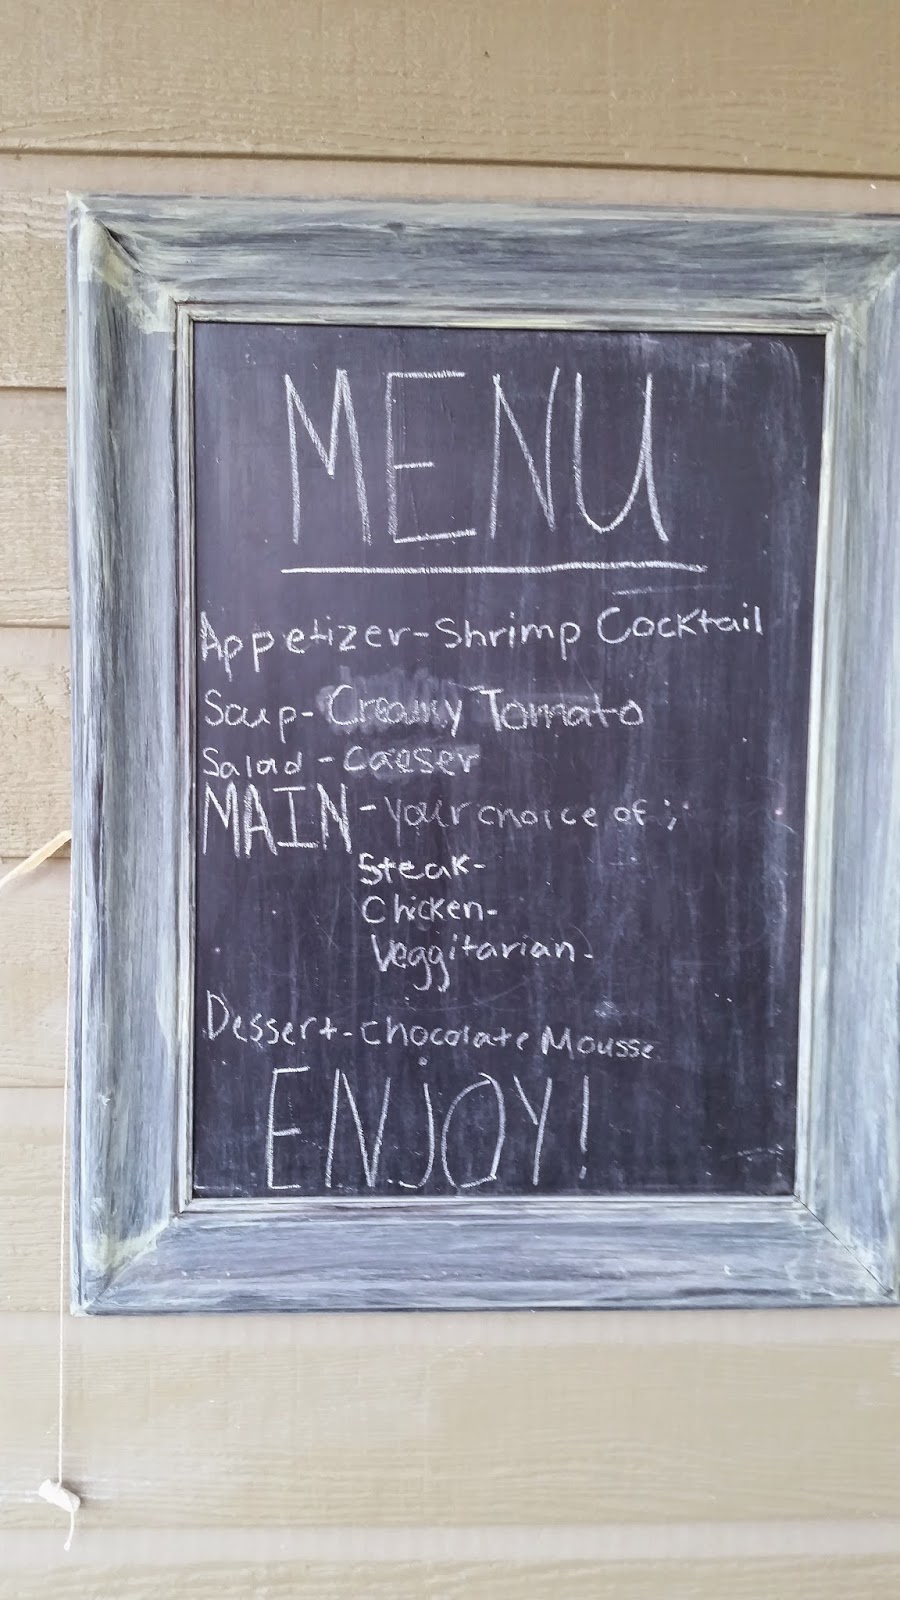 MENU
Appetizer-Shrimp Cocktail
Soup-Creamy Tomato
Salad-Caeser
MAIN-your choice of;
Steak-
Chicken-
Veggitarian-
Dessert-Chocolate Mousse
ENJOY!